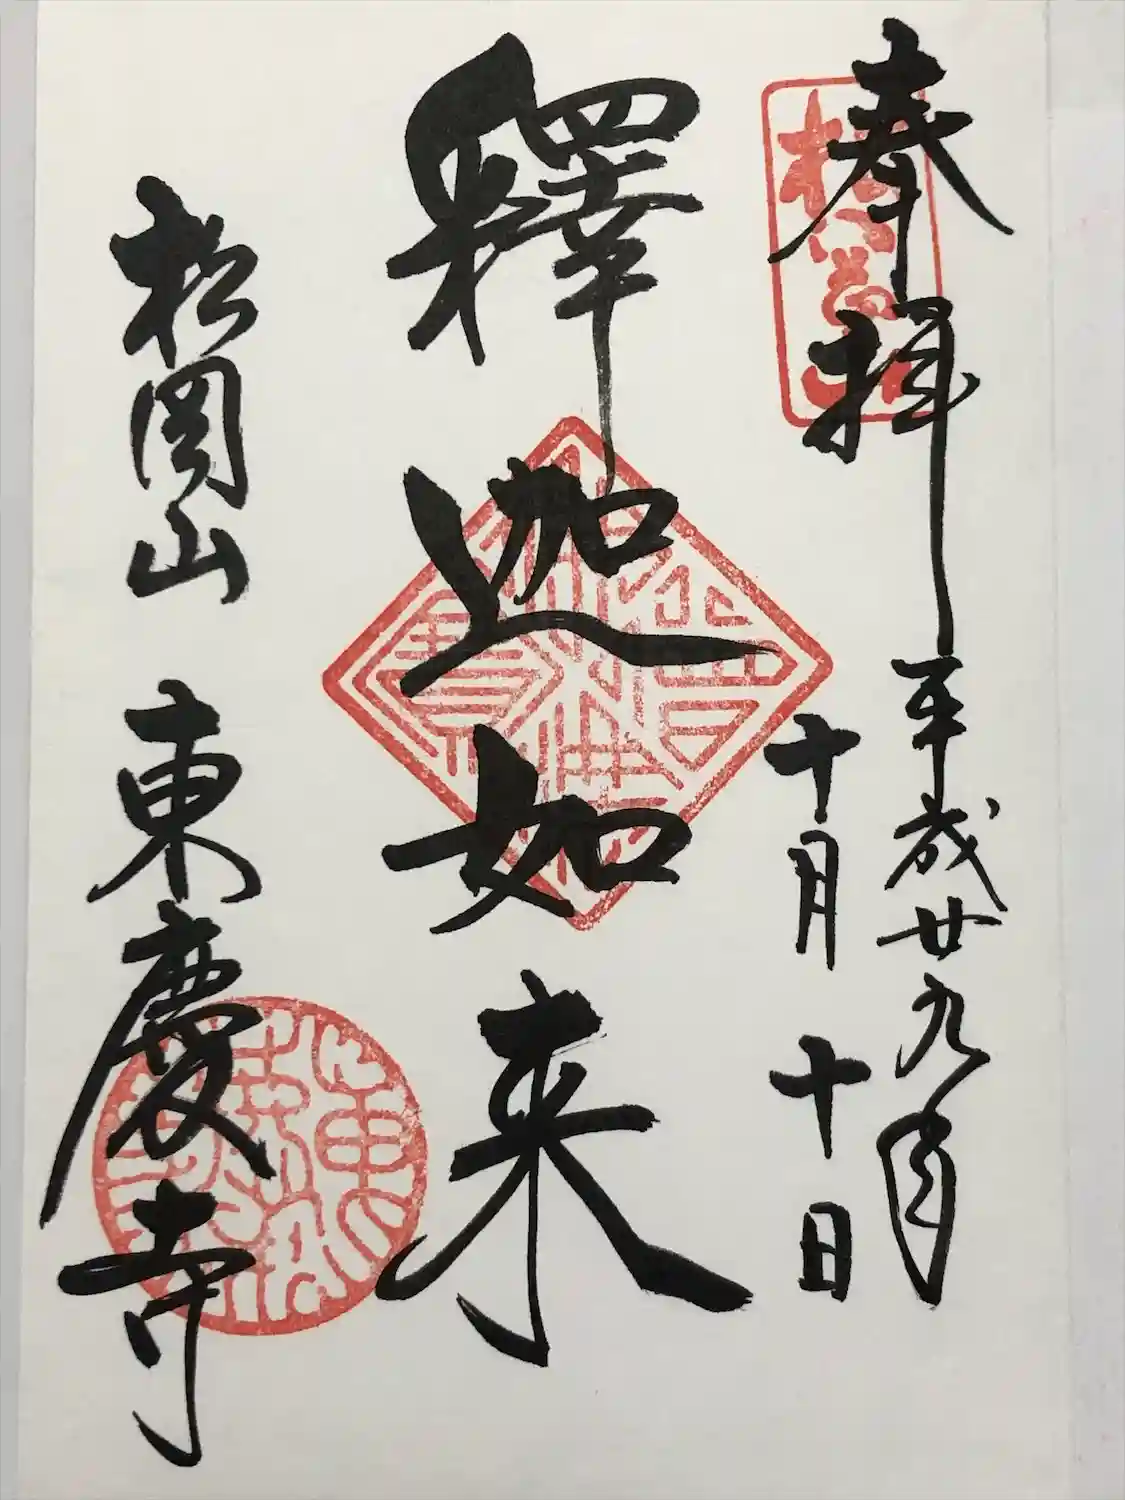 奉拝
平成廿九年
十月十日
釋迦如来
松岡山 東慶寺